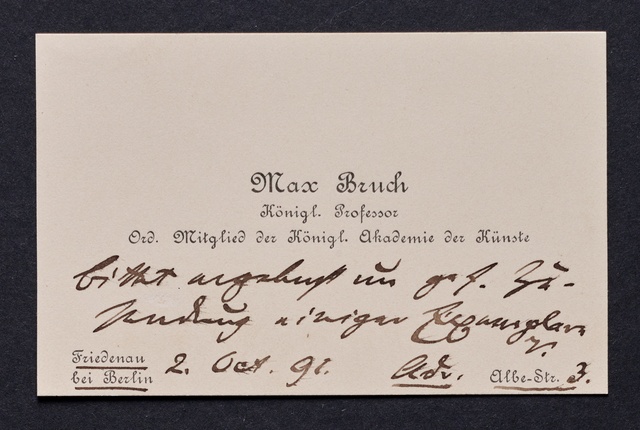 Max Bruch
Königl. Professor
Ord. Mitglied der Königl. Akademie der Künste
bittet ergebenst um gef. Zu-
sendung einiger Exemplare
Friedenau
bei Berlin 2. Oct. 91. Adr. Albe-Str. 3.